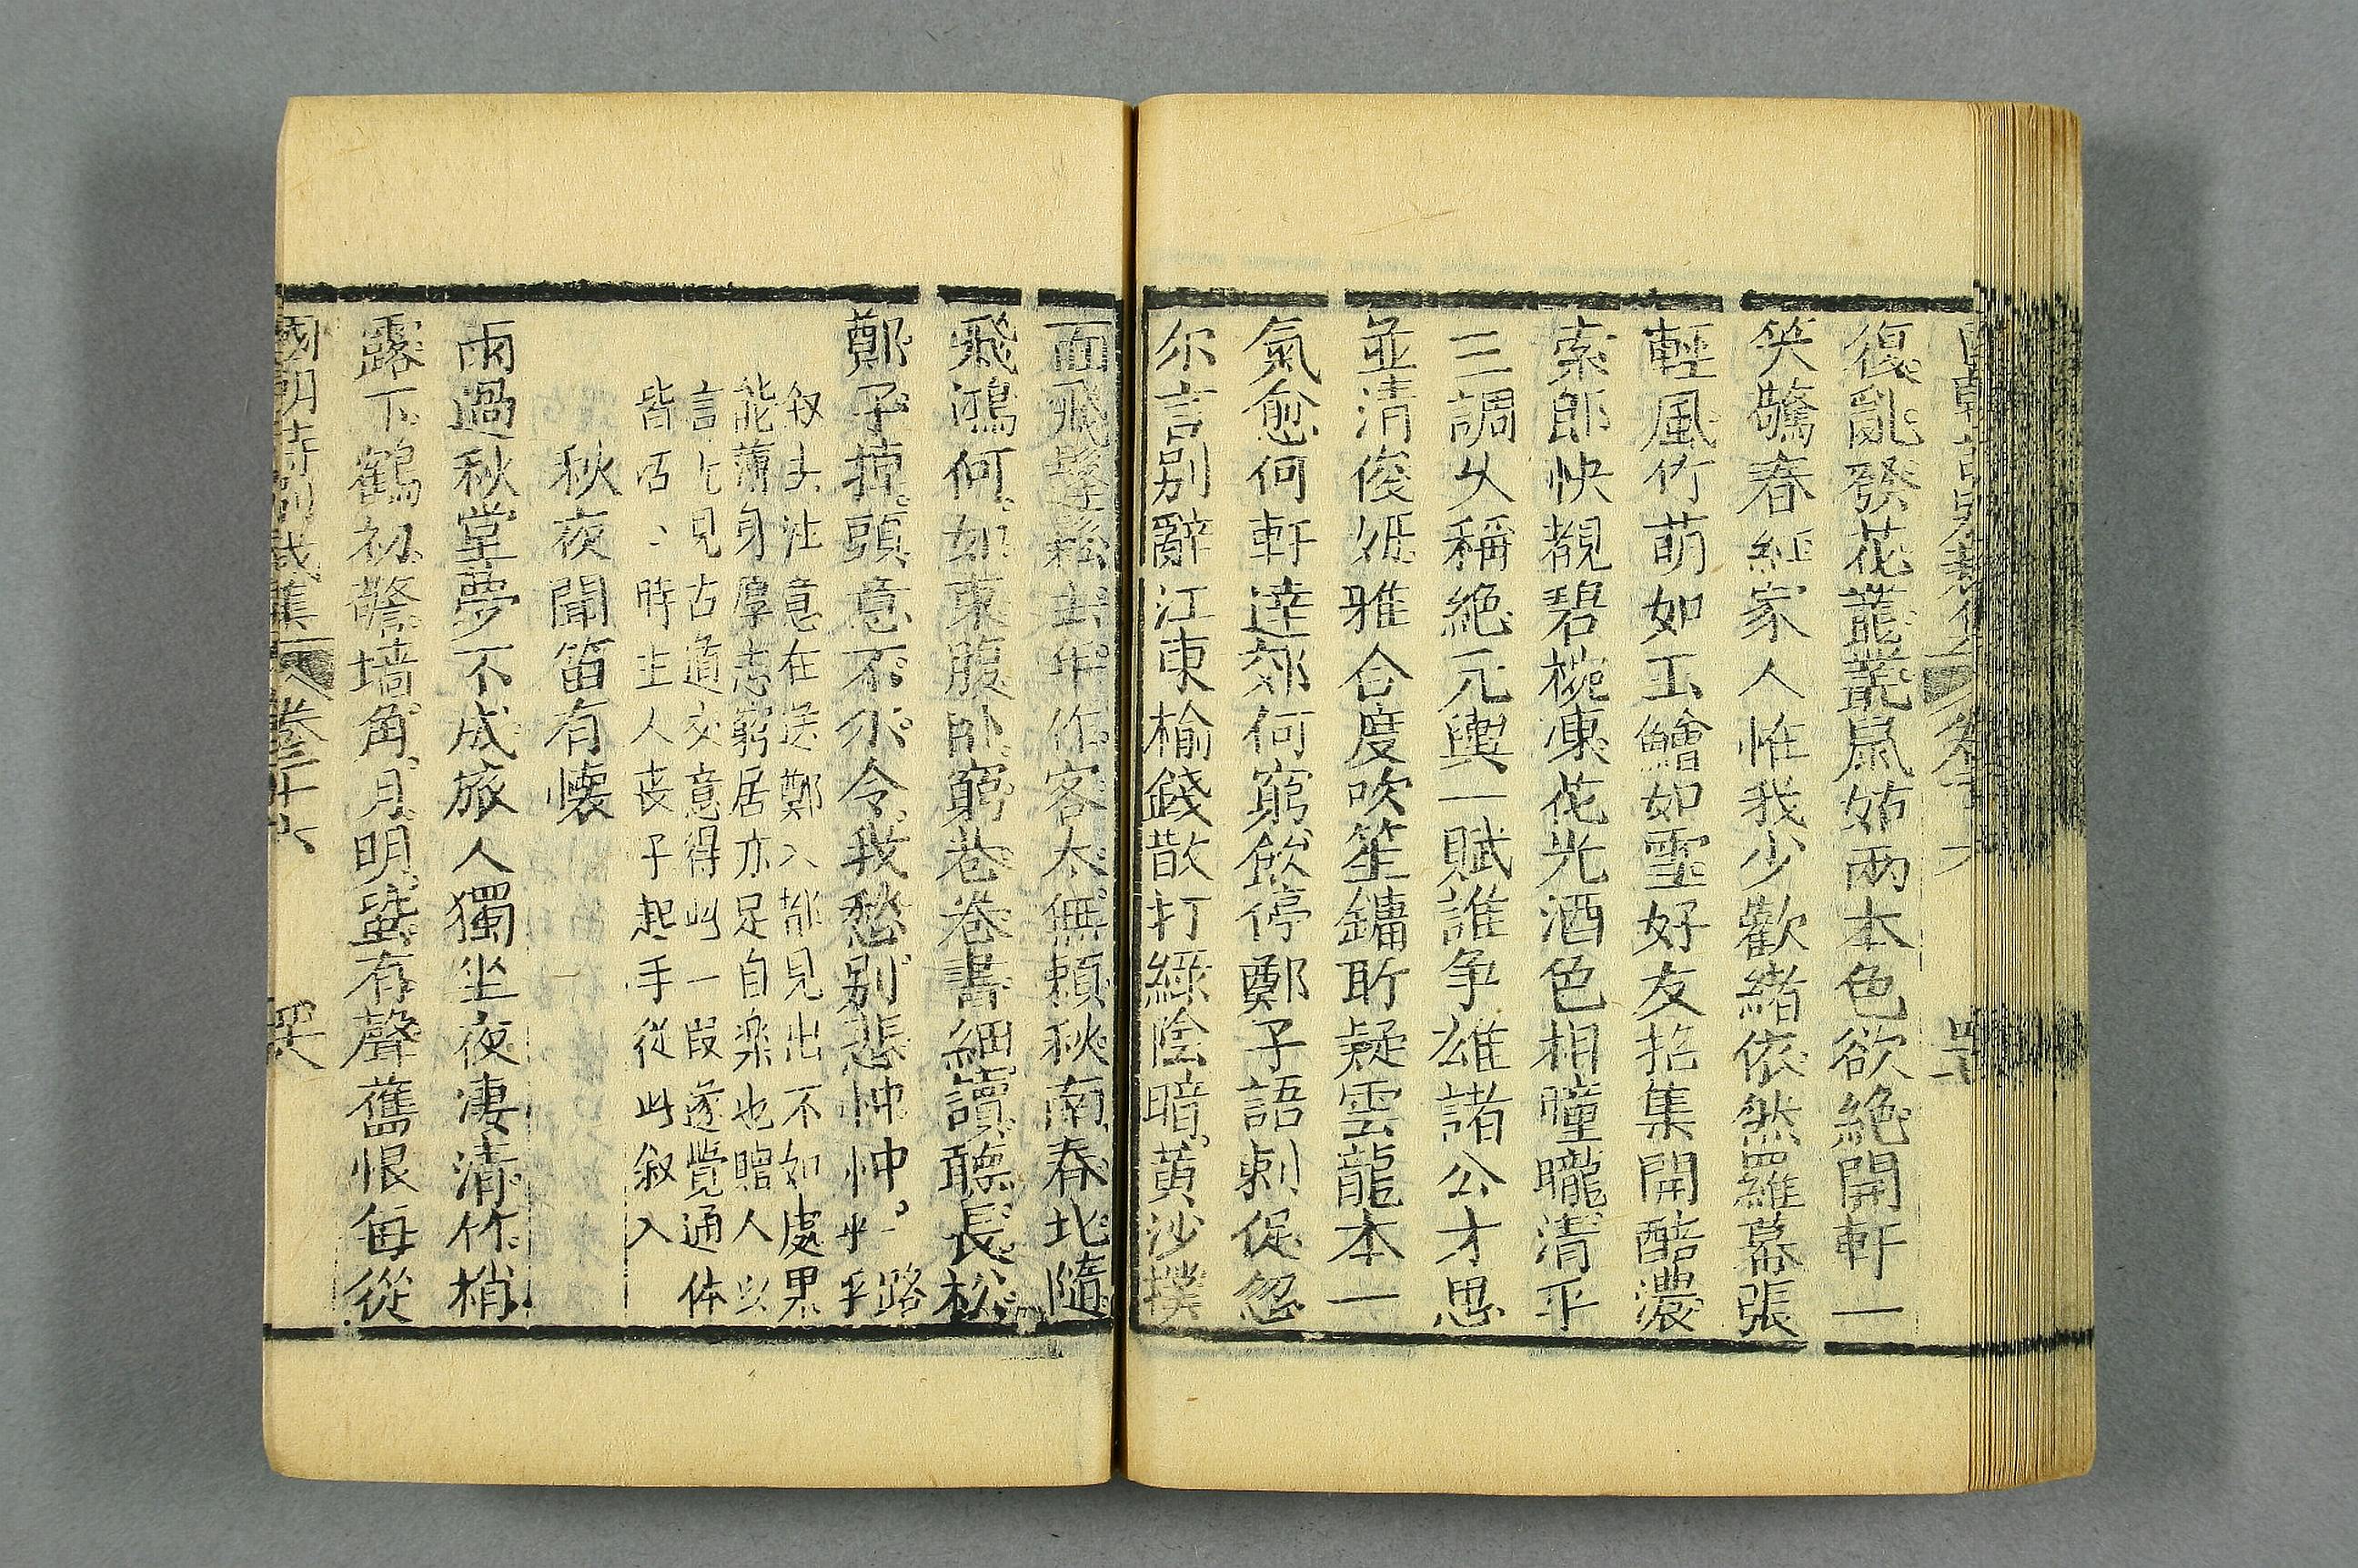 復亂發花叢叢鼠姑兩本色欲絶開軒一
笑驚春紅家人惟我少歡緒依然羅幕張
輕風竹萌如玉鱠如雪好友招集開醅濃
索郎快覩碧椀凍花光酒色相曈曨清平
三調久稱絶元輿一賦誰争雄諸公才思
並清俊娬雅合度吹笙鏞眎疑雲龍本一
氣愈何軒達郊何窮飲停鄭子語刺促忽
尔言别辭江東榆錢散打綠陰暗黄沙撲
面飛鬆年作客太無頼秋南春北隨
飛鴻何如東腹卧窮巷巷書細讀聽長松
鄭子掉頭意不尔令我愁别悲忡忡
一路
乎乎
叙去注意在送鄭入都見出不如處畏
能薄身厚志窮居亦足自楽也贈人以
言尢見古道交意得此一叚遂覺通体
皆活、時主人丧子起手從此叙入
秋夜聞笛有懐
雨過秋堂夢不成旅人獨坐夜凄清竹梢
露下鶴初警墙角月明蛩有聲舊恨每從
國朝詩别裁集 卷三十六